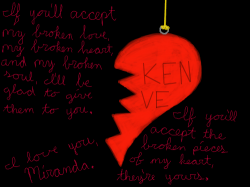 If you'll accept
my broken love,
my broken heart,
and my broken
soul, I'll be
glad to give
them to you.
KEN
VE
If you'll
accept the
broken pieces
of my heart,
they're yours.
I love you,
Miranda.